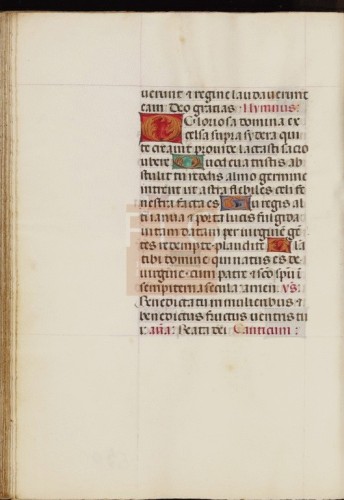 uerunt & regine laudauerunt
eam Deo gracias. Hymnus.
O Gloriosa domina ex
celsa supra sydera qui
te creauit prouide lactasti sacro
ubere Quod eua tristis ab
stulit tu reddis almo germine
intrent ut astra flebiles celi fe
nestra facta es Tu regis al
ti ianua & porta lucis fulgida
uitam datam per uirginem gen
tes redempte plaudite Glori
tibi domine qui natus es de
uirgine cum patre & sco spu i
sempiterna secula amen. vs.
Benedicta tu in mulieribus &
benedictus fructus uentris tu
i. aña. Beata dei Canticum :